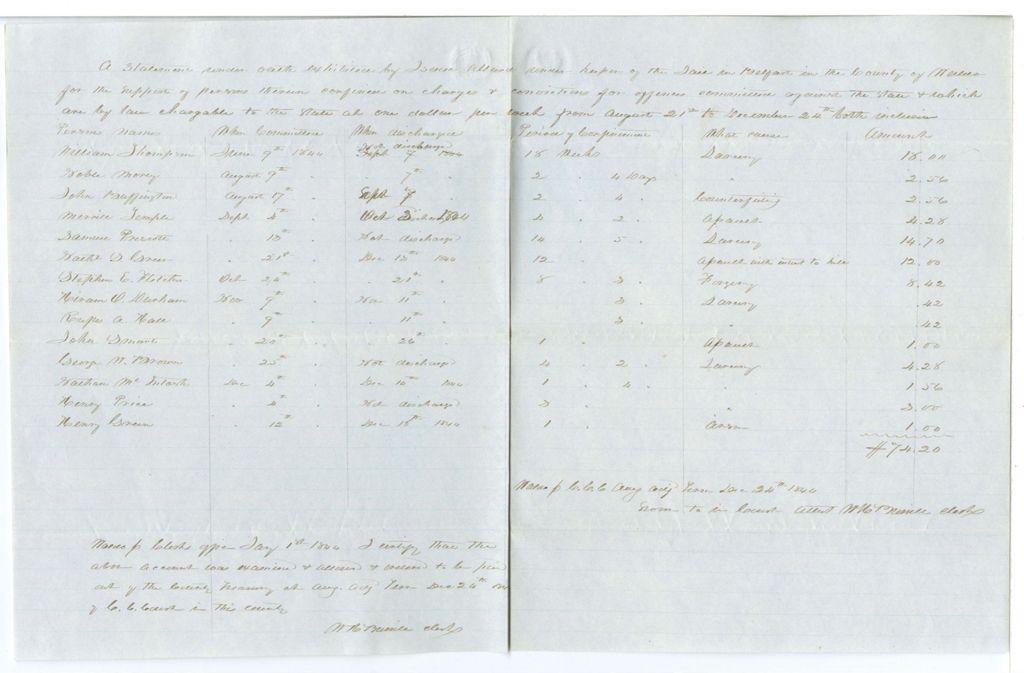 A Statement under oath exhibited by Isaac Allard under keeper of the Jail in Belfast in the County of Waldo
for the support of persons therein confined on charges & convictions for offences committed against the State & which
are by law chargable to the State at one dollar per week from August 21st to December 24th both inclusive
Persons names When Committed When discharged Period of Confinement What cause Amount
William Thompson June 9th 1844 Not discharged 18 Weeks Larceny 18.00
Noble Morey August 9th . " 7th . 2 . 4 Days " 2.56
John Buffington August 17th . Sept 7 . 2 . 4 . Counterfeiting 2.56
Merrill Temple Sept 4th . Oct 1844 4 . 2 . Assault 4.28
Samuel Prescott . 13th . Not discharged 14 . 5 . Larceny 14.70
. 21st . Dec 13th 1844 12 . Assault with intent to kill 12.00
Stephen E. . Oct 24th . . 21st . 8 . 3 . Forgery 8.42
Hiram O. . Nov 9th . Nov 11th . 3 . Larceny .42
Rufus A. Hall . 9th . . 11th . 3 . " .42
John . 20th . . 26th . 1 . Assault 1.00
George W. Brown . 25th . Not discharged 4 . 2 . Larceny 4.28
Nathan Mc Intosh Dec 4th . Dec 14th 1844 1 . 4 . " 1.56
Henry Price . 4th . Not discharged 3 . " 3.00
Henry Green . 12 . Dec 18th 1844 1 . Arson 1.00
$74.20
Waldo ss C.C.C. Aug adj Term Dec 24th 1844
Sworn to in Court Attest clerk
Waldo ss Clerks office Jany 1st 1844 I certify that the
above account was examined & allowed & ordered to be paid
out of the County Treasury at Aug. adj Term Dec 24th
of C.C. Court in this county
clerk